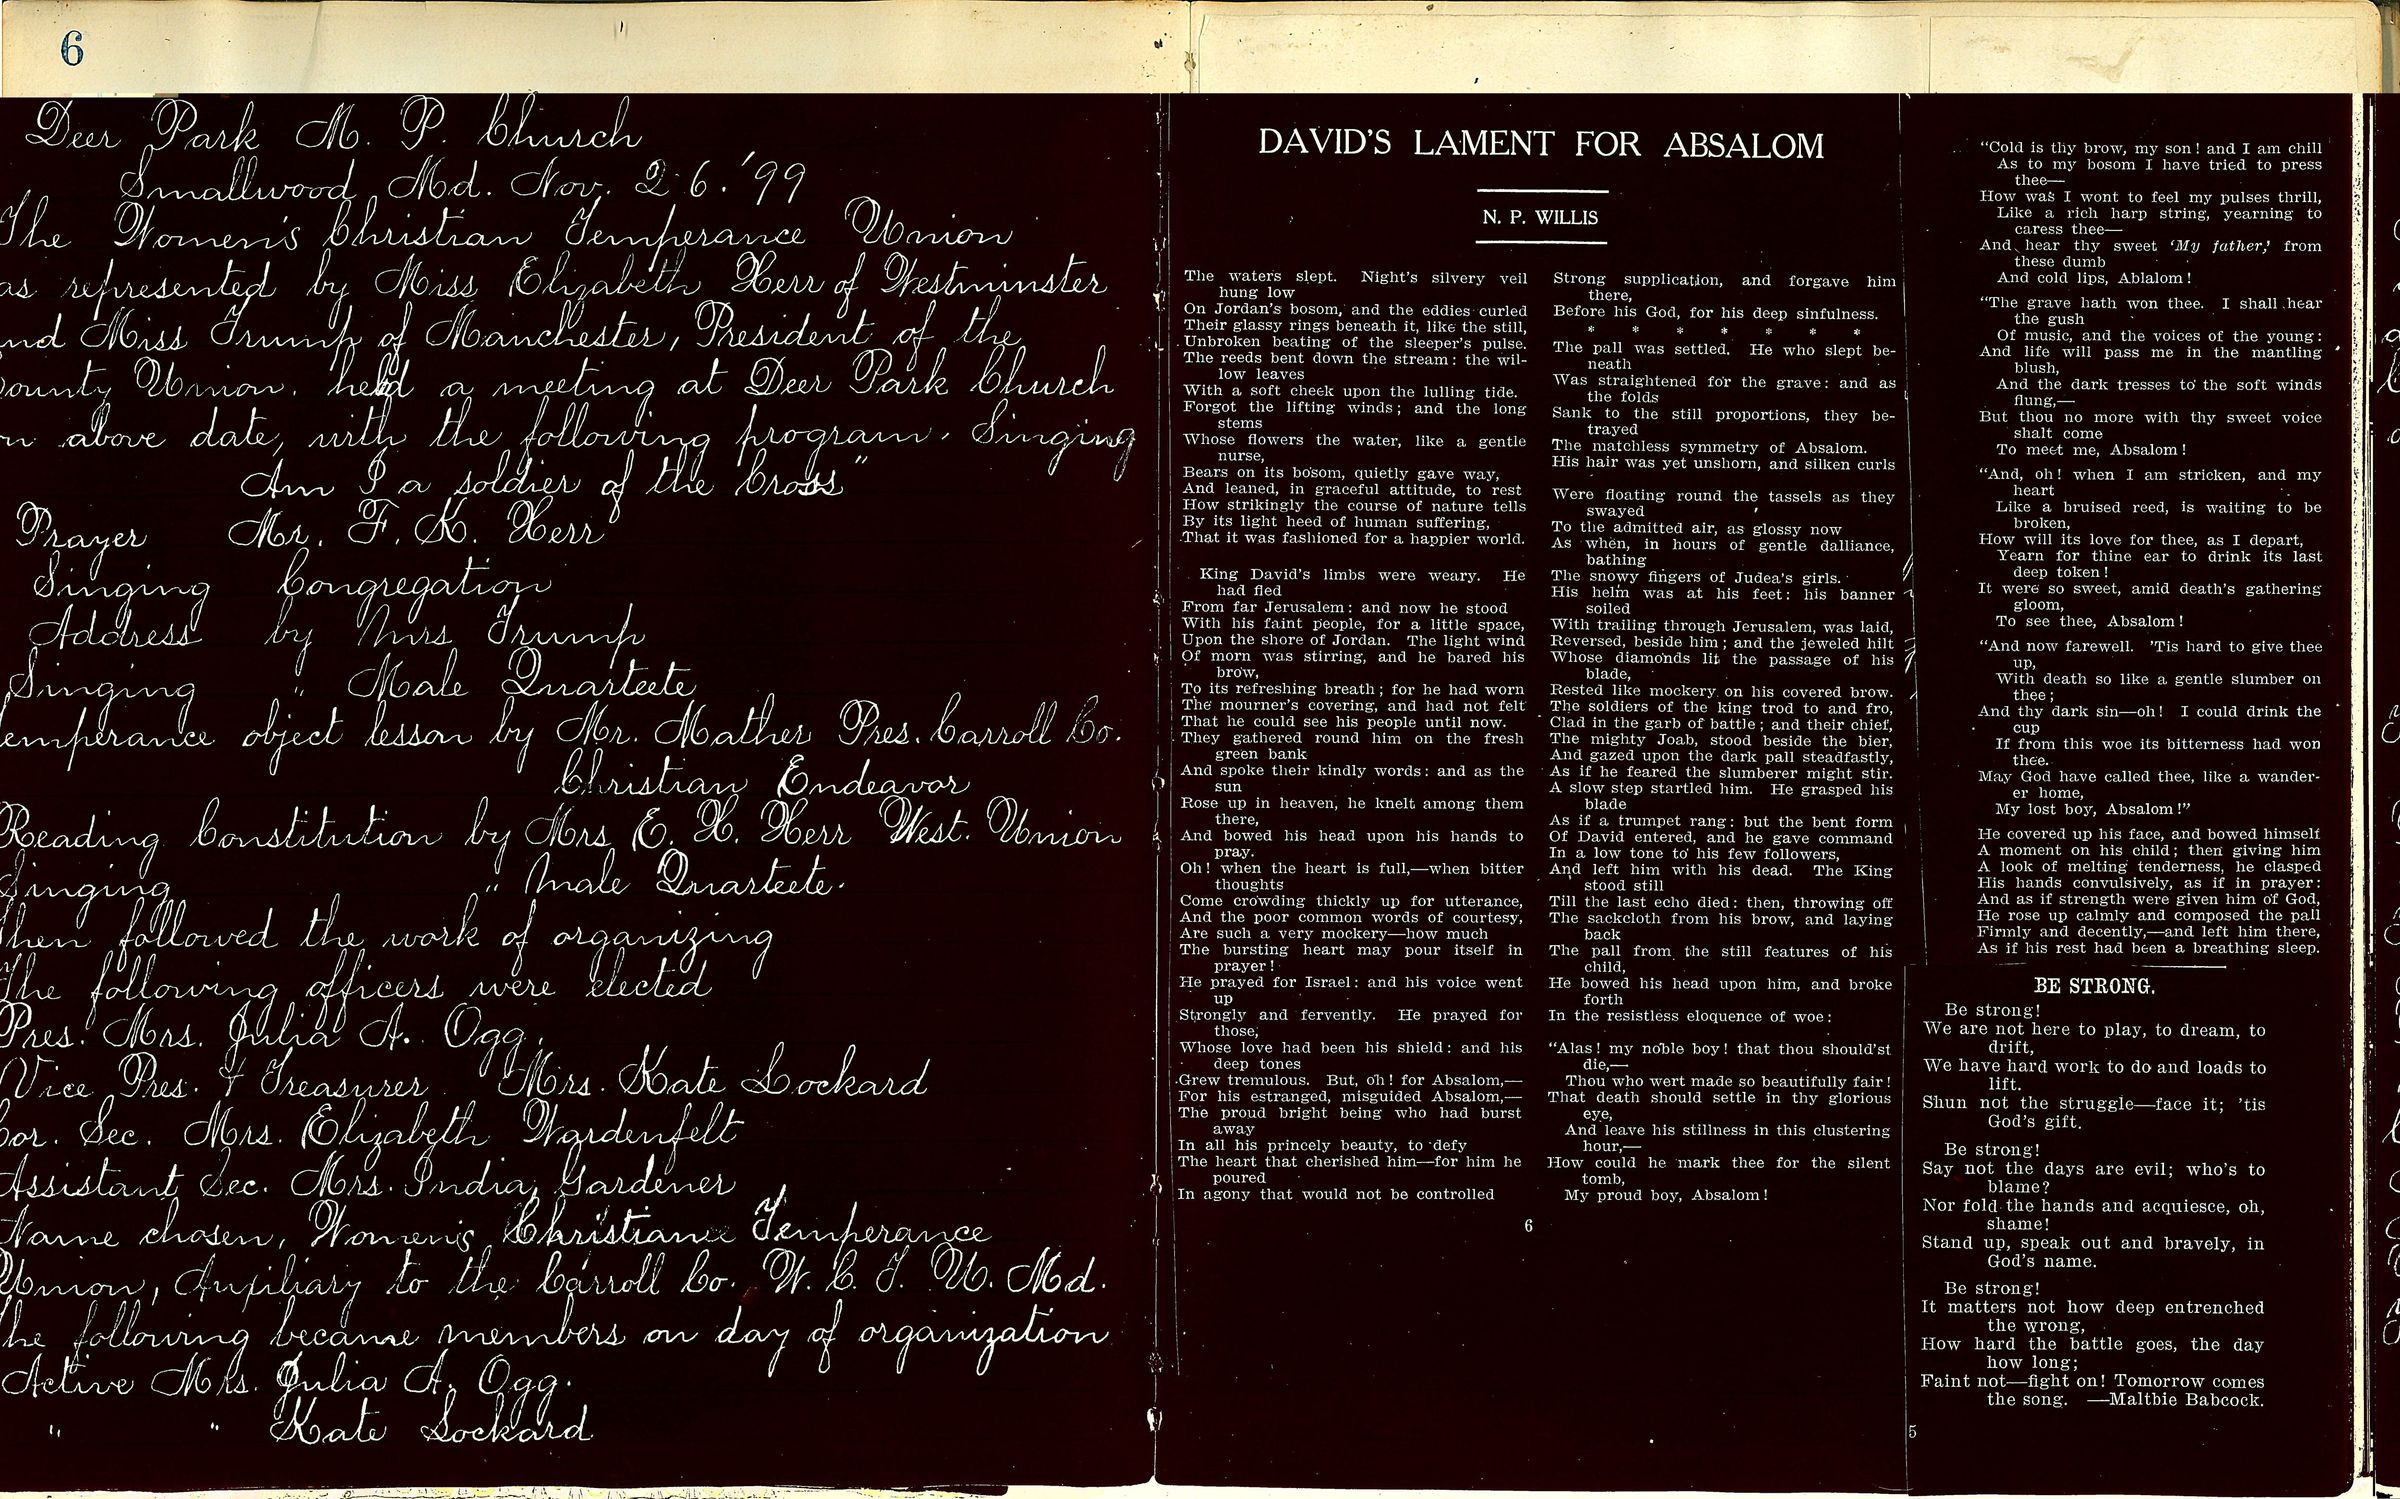 6
Deer Park M. P. Church
Smallwood Md. Nov. 26. '99
The Women's Christian Temperance Union
as represented by Miss Elizabeth Herr of Westminster
nd Miss Trump of Manchester, President of the
ounty Union. held a meeting at Deer Park Church
n above date, with the following program. Singing
Am I a soldier of the Cross"
Prayer Mr. F. K. Herr
Singing Congregation
Address by Mrs Trump
Singing " Male Quarteete
emperance object lesson by Mr. Mather Pres. Carroll Co.
Christian Endeavor
Reading Constitution by Mrs E. H. Herr West. Union
Singing " Male Quarteete.
Then followed the work of organizing
The following officers were elected
Pres. Mrs. Julia A. Ogg.
Vice Pres. & Treasurer Mrs. Kate Lockard
Cor. Sec. Mrs. Elizabeth Wardenfelt
Assistant Sec. Mrs. India Gardener
Name chosen, Women's Christiance Temperance
Union, Auxiliary to the Carroll Co. W. C. T. U. Md.
he following became members on day of organization
Active Mrs. Julia A. Ogg.
" " Kate Lockard
DAVID'S LAMENT FOR ABSALOM
N. P. WILLIS
The waters slept. Night's silvery veil
hung low
On Jordan's bosom, and the eddies curled
Their glassy rings beneath it, like the still,
Unbroken beating of the sleeper's pulse.
The reeds bent down the stream: the wil-
low leaves
With a soft cheek upon the lulling tide.
Forgot the lifting winds; and the long
stems
Whose flowers the water, like a gentle
nurse,
Bears on its bosom, quietly gave way,
And leaned, in graceful attitude, to rest
How strikingly the course of nature tells
By its light heed of human suffering,
That it was fashioned for a happier world.
King David's limbs were weary. He
had fled
From far Jerusalem: and now he stood
With his faint people, for a little space,
Upon the shore of Jordan. The light wind
Of morn was stirring, and he bared his
brow,
To its refreshing breath; for he had worn
The mourner's covering, and had not felt
That he could see his people until now.
They gathered round him on the fresh
green bank
And spoke their kindly words: and as the
sun
Rose up in heaven, he knelt among them
there,
And bowed his head upon his hands to
pray.
Oh! when the heart is full,—when bitter
thoughts
Come crowding thickly up for utterance,
And the poor common words of courtesy,
Are such a very mockery—how much
The bursting heart may pour itself in
prayer!
He prayed for Israel: and his voice went
up
Strongly and fervently. He prayed for
those,
Whose love had been his shield: and his
deep tones
Grew tremulous. But, oh! for Absalom,—
For his estranged, misguided Absalom,—
The proud bright being who had burst
away
In all his princely beauty, to defy
The heart that cherished him—for him he
poured
In agony that would not be controlled
Strong supplication, and forgave him
there,
Before his God, for his deep sinfulness.
* * * * * * *
The pall was settled. He who slept be-
neath
Was straightened for the grave: and as
the folds
Sank to the still proportions, they be-
trayed
The matchless symmetry of Absalom.
His hair was yet unshorn, and silken curls
Were floating round the tassels as they
swayed
To the admitted air, as glossy now
As when, in hours of gentle dalliance,
bathing
The snowy fingers of Judea's girls.
His helm was at his feet: his banner
soiled
With trailing through Jerusalem, was laid,
Reversed, beside him; and the jeweled hilt
Whose diamonds lit the passage of his
blade,
Rested like mockery on his covered brow.
The soldiers of the king trod to and fro,
Clad in the garb of battle; and their chief,
The mighty Joab, stood beside the bier,
And gazed upon the dark pall steadfastly,
As if he feared the slumberer might stir.
A slow step startled him. He grasped his
blade
As if a trumpet rang: but the bent form
Of David entered, and he gave command
In a low tone to his few followers,
And left him with his dead. The King
stood still
Till the last echo died: then, throwing off
The sackcloth from his brow, and laying
back
The pall from the still features of his
child,
He bowed his head upon him, and broke
forth
In the resistless eloquence of woe:
"Alas! my noble boy! that thou should'st
die,—
Thou who wert made so beautifully fair!
That death should settle in thy glorious
eye,
And leave his stillness in this clustering
hour,—
How could he mark thee for the silent
tomb,
My proud boy, Absalom!
6
"Cold is thy brow, my son! and I am chill
As to my bosom I have tried to press
thee—
How was I wont to feel my pulses thrill,
Like a rich harp string, yearning to
caress thee—
And hear thy sweet 'My father,' from
these dumb
And cold lips, Ablalom!
"The grave hath won thee. I shall hear
the gush
Of music, and the voices of the young:
And life will pass me in the mantling
blush,
And the dark tresses to the soft winds
flung,—
But thou no more with thy sweet voice
shalt come
To meet me, Absalom!
"And, oh! when I am stricken, and my
heart
Like a bruised reed, is waiting to be
broken,
How will its love for thee, as I depart,
Yearn for thine ear to drink its last
deep token!
It were so sweet, amid death's gathering
gloom,
To see thee, Absalom!
"And now farewell. 'Tis hard to give thee
up,
With death so like a gentle slumber on
thee;
And thy dark sin—oh! I could drink the
cup
If from this woe its bitterness had won
thee.
May God have called thee, like a wander-
er home,
My lost boy, Absalom!"
He covered up his face, and bowed himself
A moment on his child; then giving him
A look of melting tenderness, he clasped
His hands convulsively, as if in prayer:
And as if strength were given him of God,
He rose up calmly and composed the pall
Firmly and decently,—and left him there,
As if his rest had been a breathing sleep.
BE STRONG.
Be strong!
We are not here to play, to dream, to
drift,
We have hard work to do and loads to
lift.
Shun not the struggle—face it; 'tis
God's gift.
Be strong!
Say not the days are evil; who's to
blame?
Nor fold the hands and acquiesce, oh,
shame!
Stand up, speak out and bravely, in
God's name.
Be strong!
It matters not how deep entrenched
the wrong,
How hard the battle goes, the day
how long;
Faint not—fight on! Tomorrow comes
the song. —Maltbie Babcock.
5